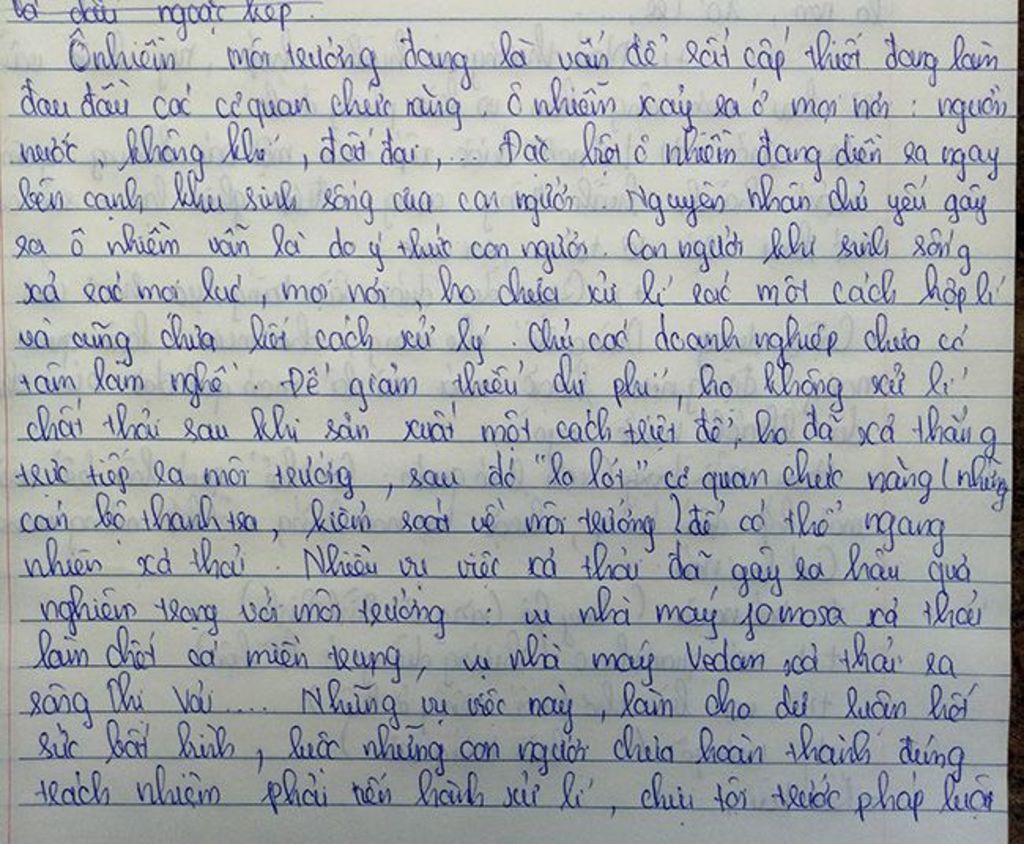 và dấu ngoặc kép.
Ô nhiễm môi trường đang là vấn đề rất cấp thiết đang làm
đau đầu các cơ quan chức năng. Ô nhiễm xảy ra ở mọi nơi: nguồn
nước, không khí, đất đai,... Đặc biệt ô nhiễm đang diễn ra ngay
bên cạnh khu sinh sống của con người. Nguyên nhân chủ yếu gây
ra ô nhiễm vẫn là do ý thức con người. Con người khi sinh sống
xả rác mọi lúc, mọi nơi, họ chưa xử lí rác một cách hợp lí
và cũng chưa biết cách xử lý. Chủ các doanh nghiệp chưa có
tâm làm nghề. Để giảm thiểu chi phí, họ không xử lí
chất thải sau khi sản xuất một cách triệt để, họ đã xả thẳng
trực tiếp ra môi trường, sau đó "lo lót" cơ quan chức năng (những
cán bộ thanh tra, kiểm soát về môi trường) để có thể ngang
nhiên xả thải. Nhiều vụ việc xả thải đã gây ra hậu quả
nghiêm trọng với môi trường: vụ nhà máy Fomosa xả thải
làm chết cá miền trung, vụ nhà máy Vedan xả thải ra
sông Thị Vải.... Những vụ việc này, làm cho dư luận hết
sức bất bình, buộc những con người chưa hoàn thành đúng
trách nhiệm phải tiến hành xử lí, chịu tội trước pháp luật